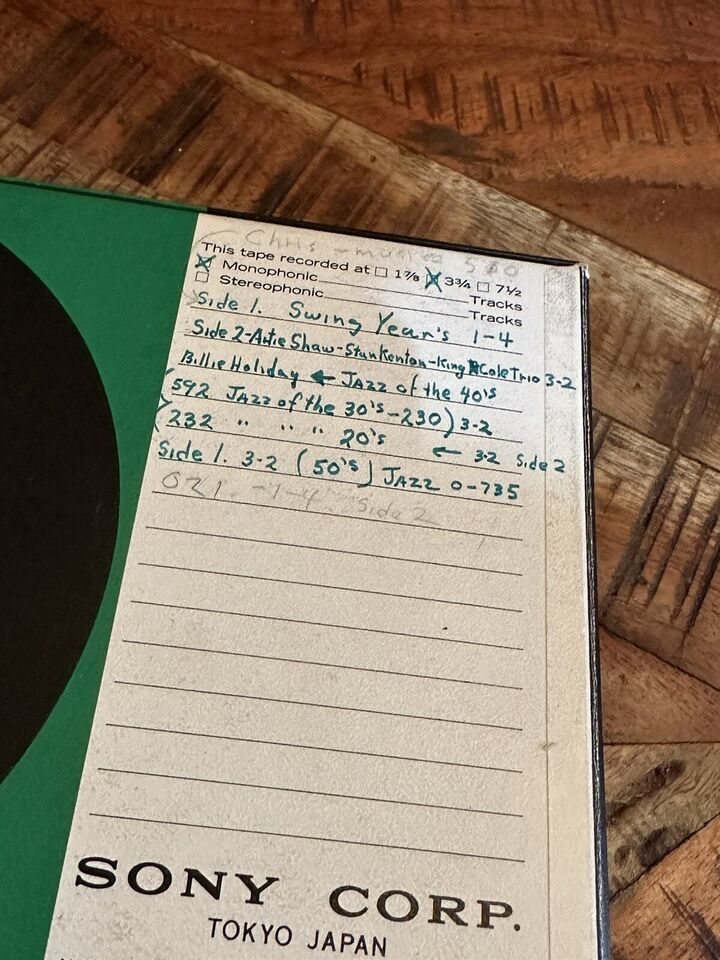 Chris - music
This tape recorded at ☐ 1⅞ ☒ 3¾ ☐ 7½
☒ Monophonic Tracks
☐ Stereophonic Tracks
Side 1. Swing Year's 1-4
Side 2-Artie Shaw-Stan Kenton-King Cole Trio 3-2
Billie Holiday ← JAZZ of the 40's
(592 JAZZ of the 30's-230) 3-2
(232 " " " 20's ← 3-2 Side 2
Side 1. 3-2 (50's) JAZZ 0-735
021. -1-4 Side 2
SONY CORP.
TOKYO JAPAN